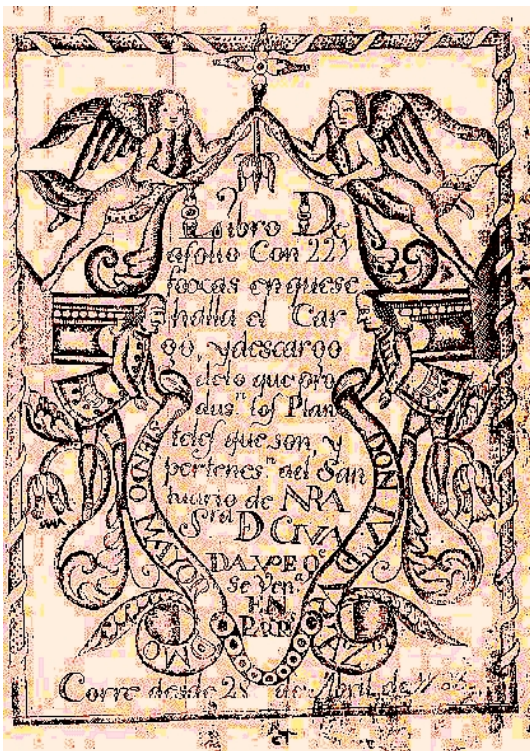 Libro De
afolio Con 223
foxas en quese
halla el Car
go, y descargo
delo que pro
dusn los Plan
teles que son, y
pertenesn. ael San
tuario de NRA
Sra D CIVA
DAVPE Qe
se Vena
EN
MAYORDOMO SEIDO
DON LUIS
Corre desde 28 de Abril de